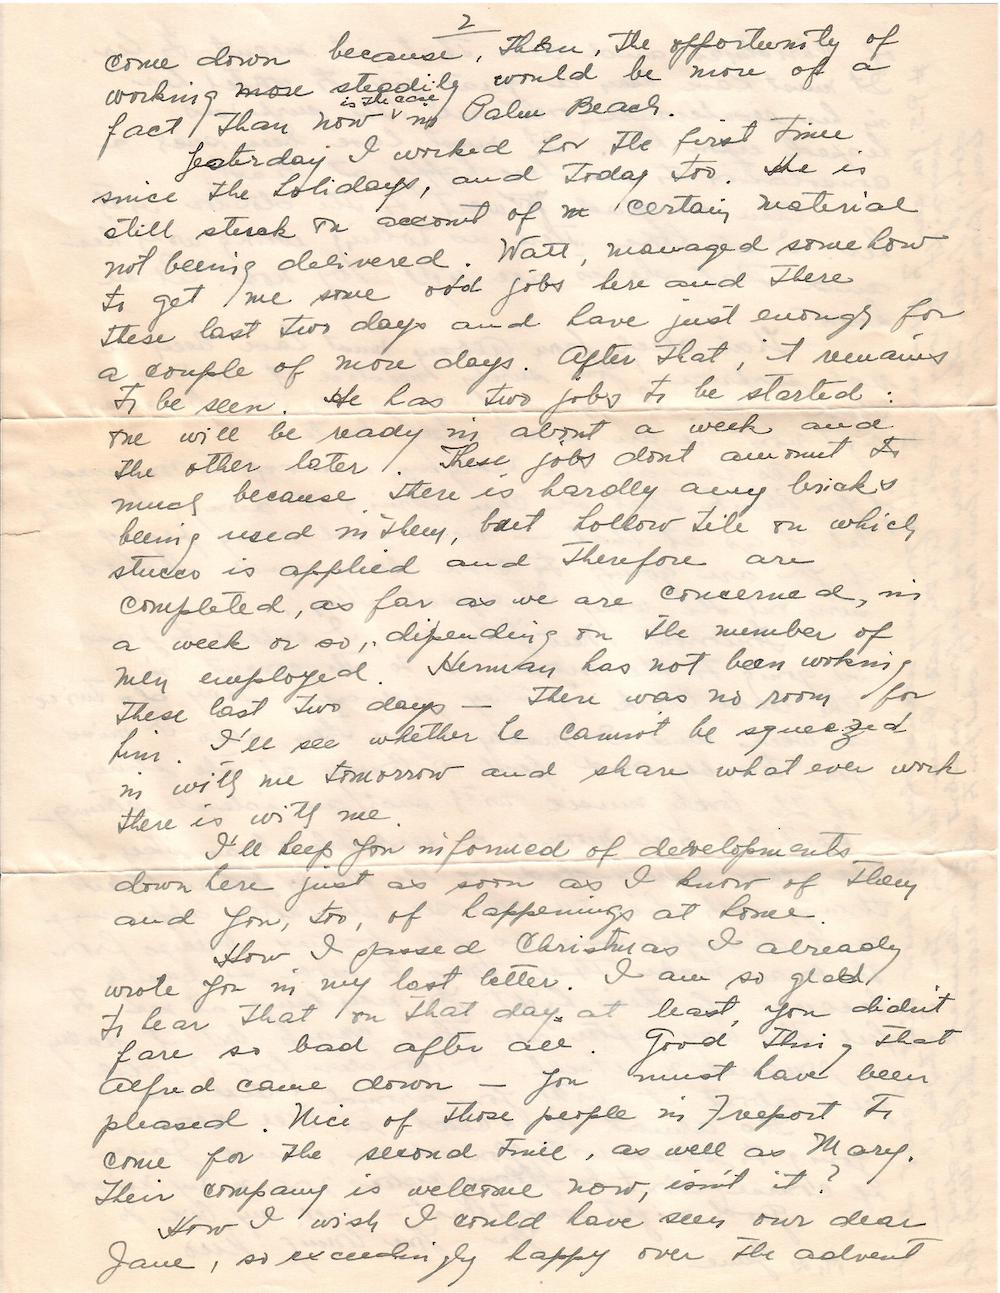 2
come down because, then, the opportunity of
working more steadily would be more of a
fact than now is the case in Palm Beach.
Yesterday I worked for the first time
since the holidays, and today too. He is
still stuck on account of certain material
not beeing delivered. Watt, managed somehow
to get me some odd jobs here and there
these last two days and have just enough for
a couple of more days. After that, it remains
to be seen. He has two jobs to be started:
one will be ready in about a week and
the other later. These jobs dont amount to
much because there is hardly any bricks
beeing used in them, but hollow tile on which
stucco is applied and therefore are
completed, as far as we are concerned, in
a week or so, dipending on the member of
men employed. Herman has not been working
these last two days — there was no room for
him. I'll see whether he cannot be squeezed
in with me tomorrow and share what ever work
there is with me.
I'll keep you informed of developments
down here just as soon as I know of them
and you, too, of happenings at home.
How I passed Christmas I already
wrote you in my last letter. I am so glad
to hear that on that day at least, you didn't
fare so bad after all. Good thing that
Alfred came down — you must have been
pleased. Nice of those people in Freeport to
come for the second time, as well as Mary.
Their company is welcome now, isn't it?
How I wish I could have seen our dear
Jane, so exceedingly happy over the advent